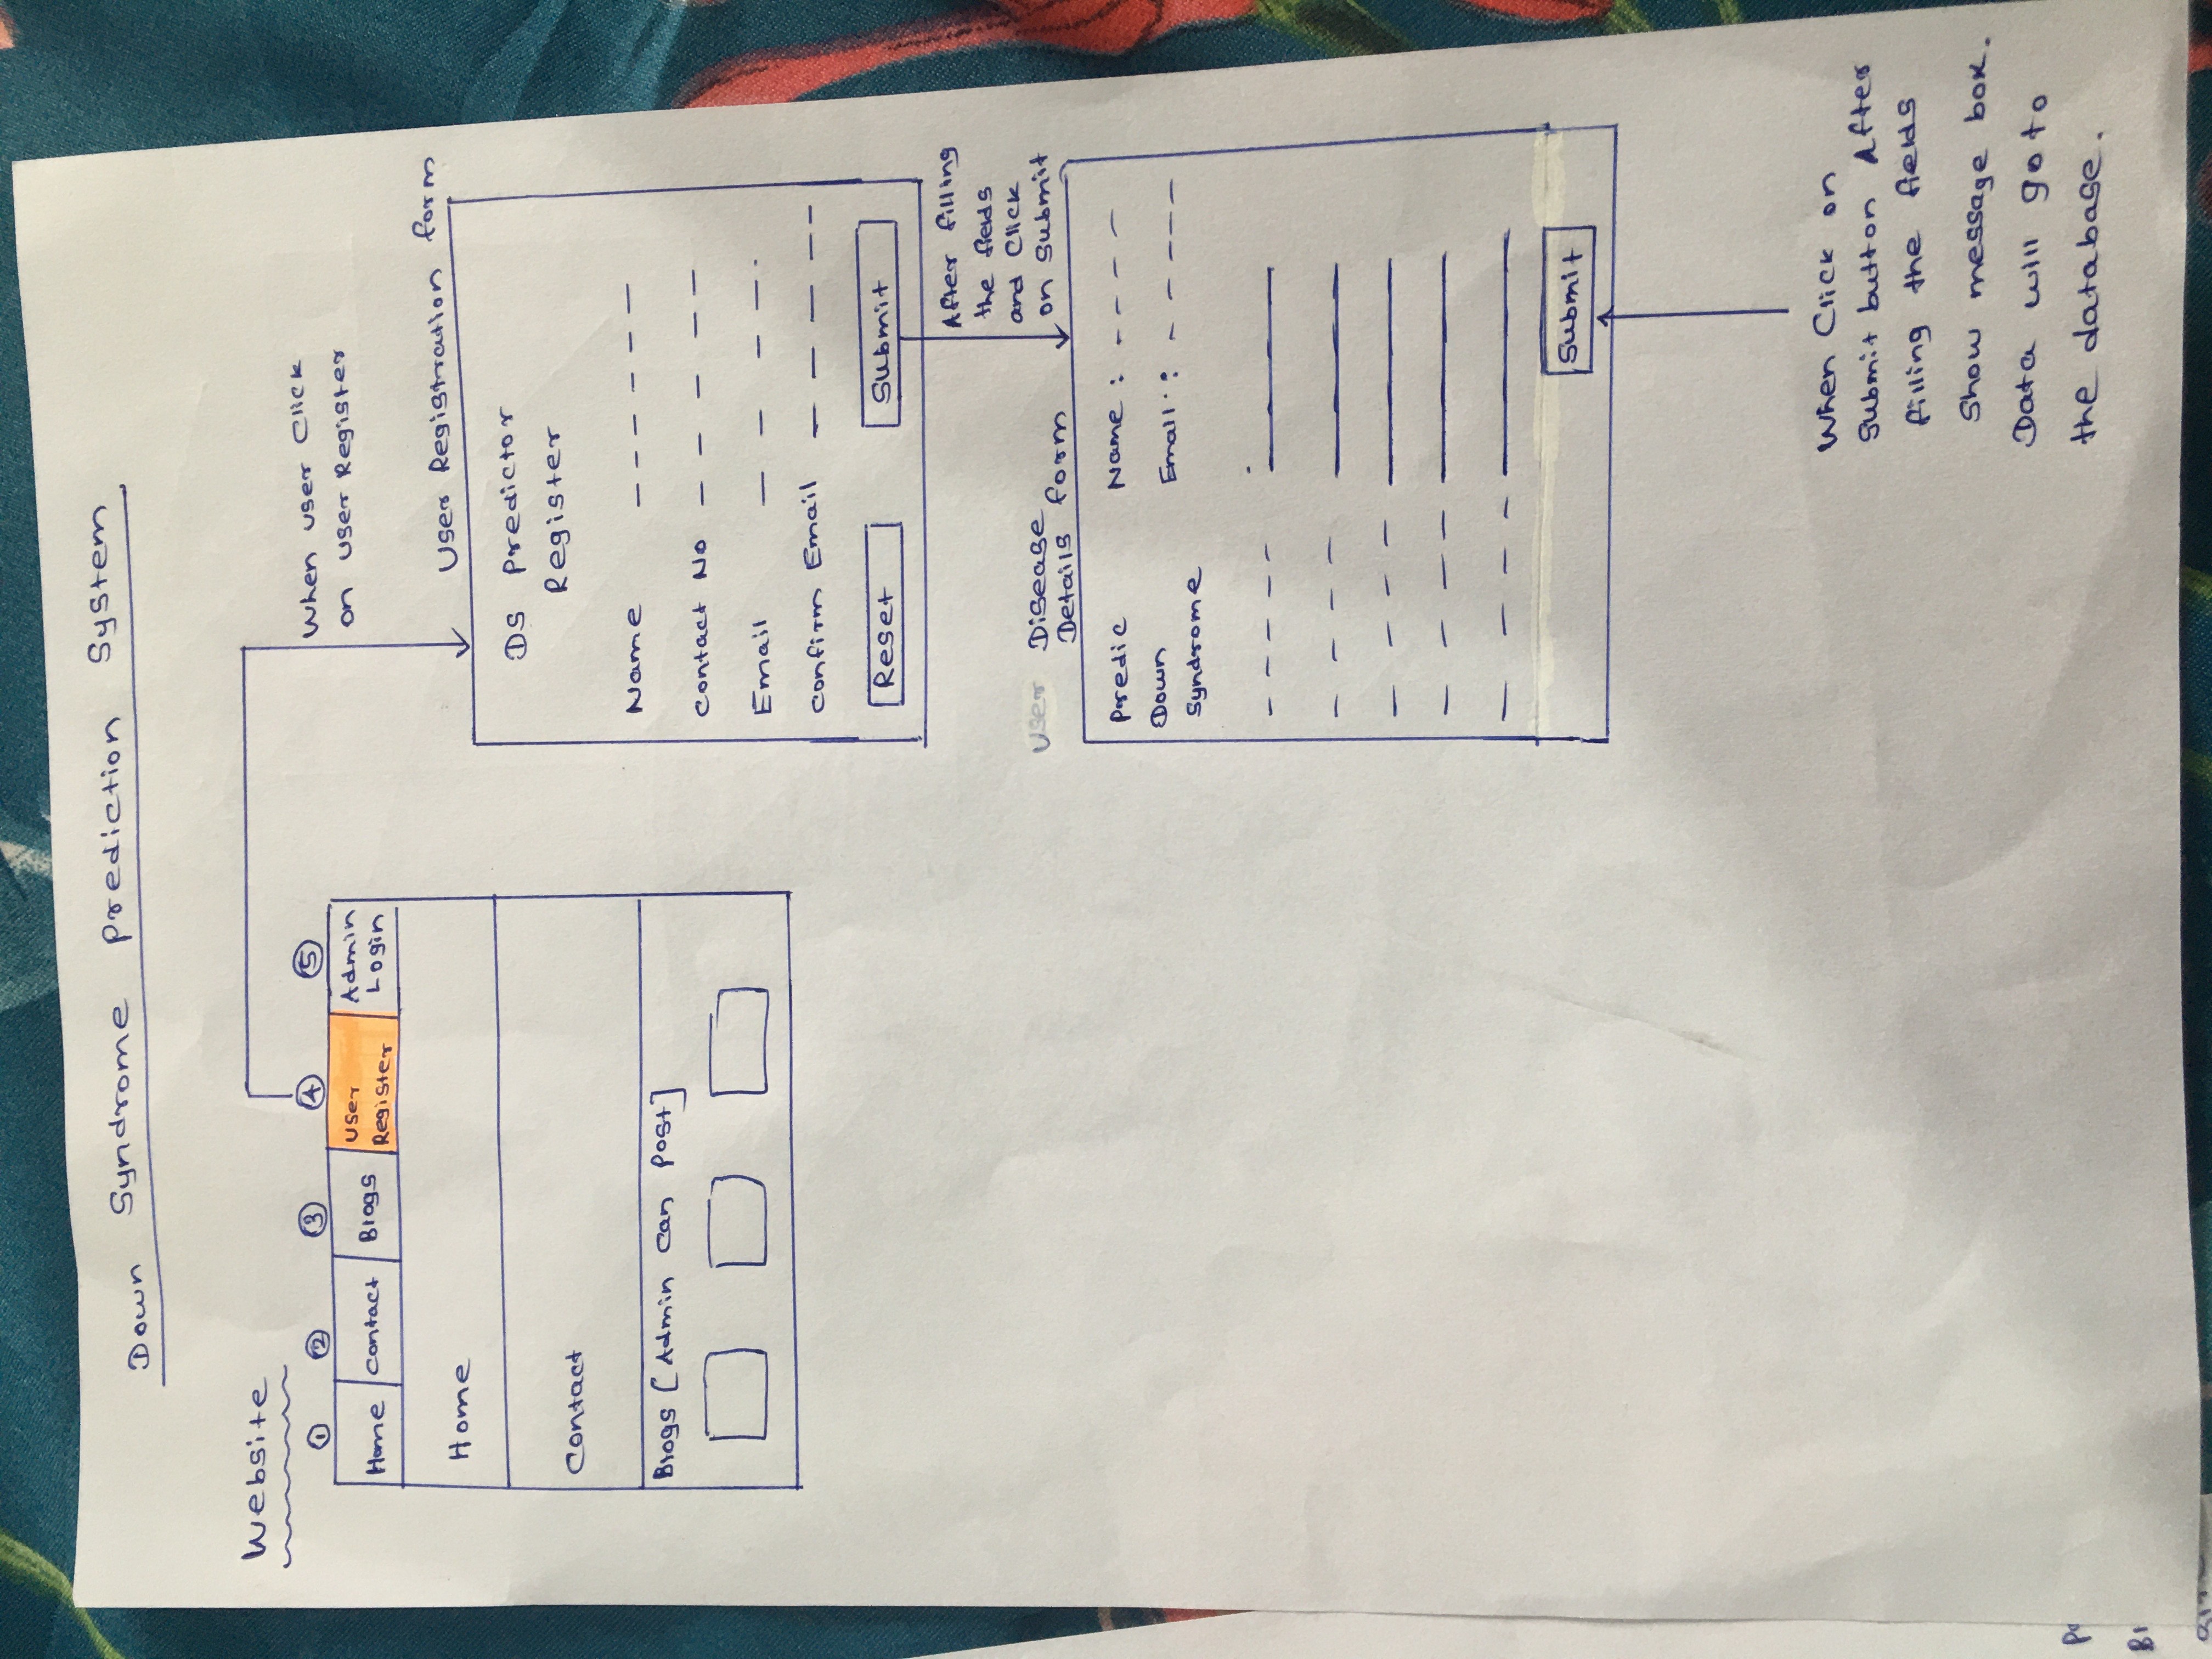 Down Syndrome Prediction System
Website
① ② ③ ④ ⑤
Home Contact Blogs User Register Admin Login
Home
Contact
Blogs [Admin can Post]
When user Click
on User Register
User Registration form
DS Predictor
Register
Name
Contact No
Email
Confirm Email
Reset Submit
After filling
the fields
and Click
on Submit
User Disease
Details form
Predic Name :
Down Email :
Syndrome
Submit
When Click on
Submit button After
filling the fields
Show message box.
Data will go to
the database.